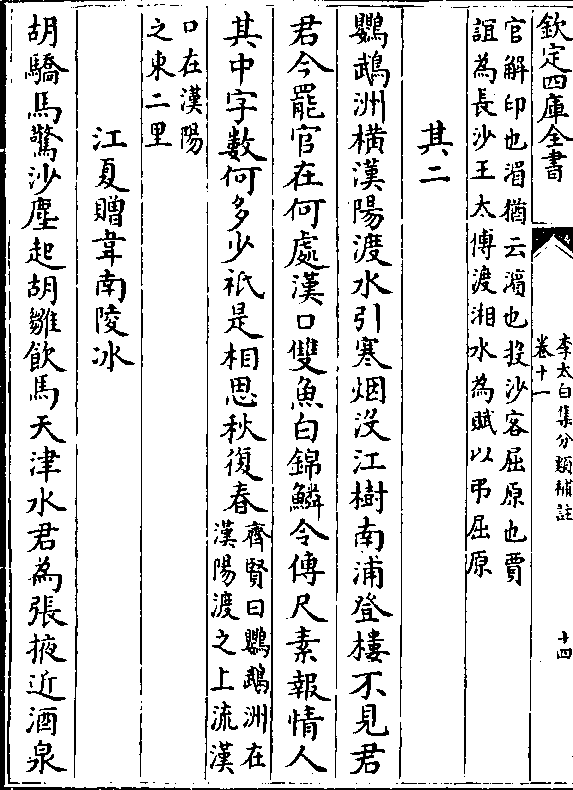 欽定四庫全書
李太白集分類補註
卷十一
十四
官解印也湄猶云濱也投沙客屈原也賈
誼為長沙王太傅渡湘水為賦以弔屈原
其二
鸚鵡洲橫漢陽渡水引寒烟沒江樹南浦登樓不見君
君今罷官在何處漢口雙魚白錦鱗令傳尺素報情人
其中字數何多少秖是相思秋復春
齊賢曰鸚鵡洲在
漢陽渡之上流漢
口在漢陽
之東二里
江夏贈韋南陵冰
胡驕馬驚沙塵起胡雛飲馬天津水君為張掖近酒泉